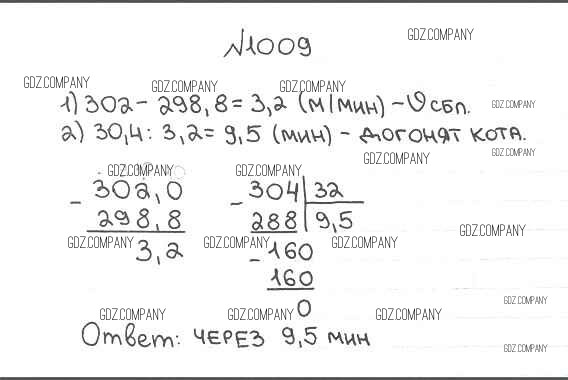 №1009
GDZ.COMPANY
GDZ.COMPANY GDZ.COMPANY GDZ.COMPANY
1) 302 - 298,8 = 3,2 (м/мин) - υ сбл.
GDZ.COMPANY
2) 30,4 : 3,2 = 9,5 (мин) - догонят кота.
GDZ.COMPANY
GDZ.COMPANY GDZ.COMPANY
- 302,0 - 304 | 32
298,8 288 | 9,5
GDZ.COMPANY GDZ.COMPANY GDZ.COMPANY GDZ.COMPANY
3,2 - 160
160
0
GDZ.COMPANY GDZ.COMPANY GDZ.COMPANY GDZ.COMPANY
Ответ: через 9,5 мин
GDZ.COMPANY